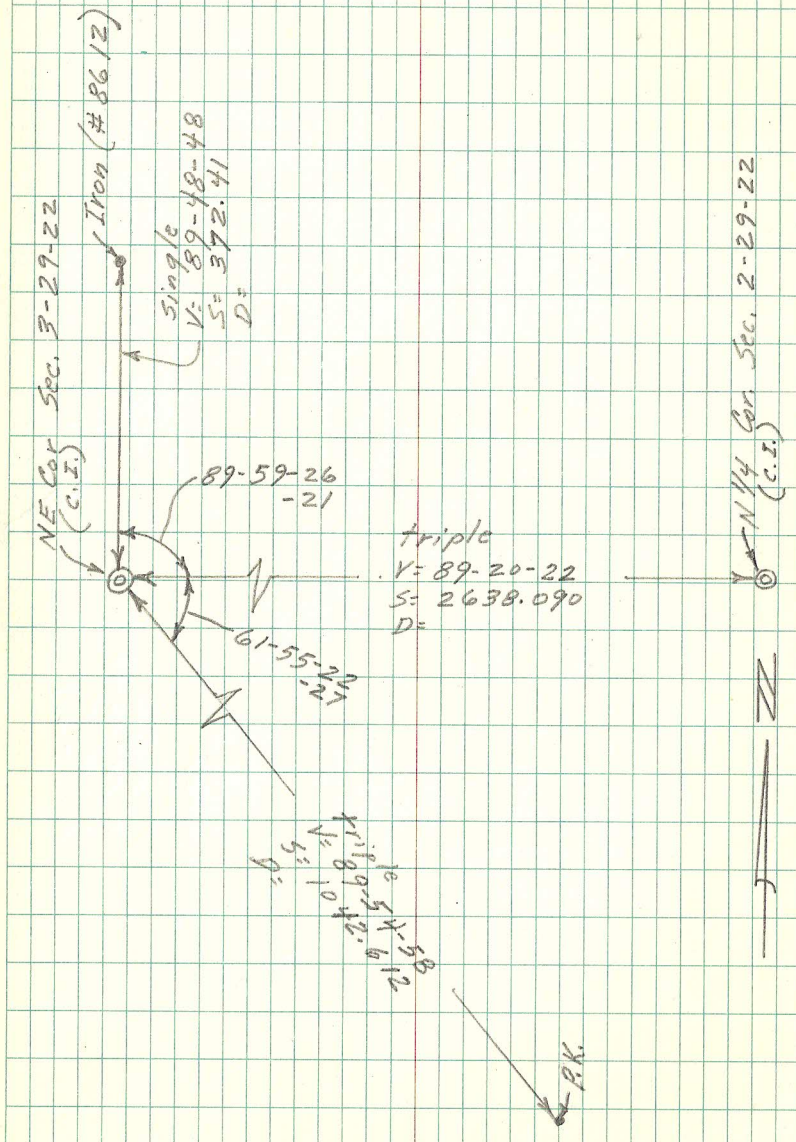 NE Cor Sec. 3-29-22
(C.I.)
Iron (#8612)
Single
V= 89-48-48
S= 372.41
D=
89-59-26
-21
61-55-22
-27
triple
V= 89-20-22
S= 2638.090
D=
triple
V= 89-54-58
S=
D=
P.K.
N 1/4 Cor. Sec. 2-29-22
(C.I.)
N